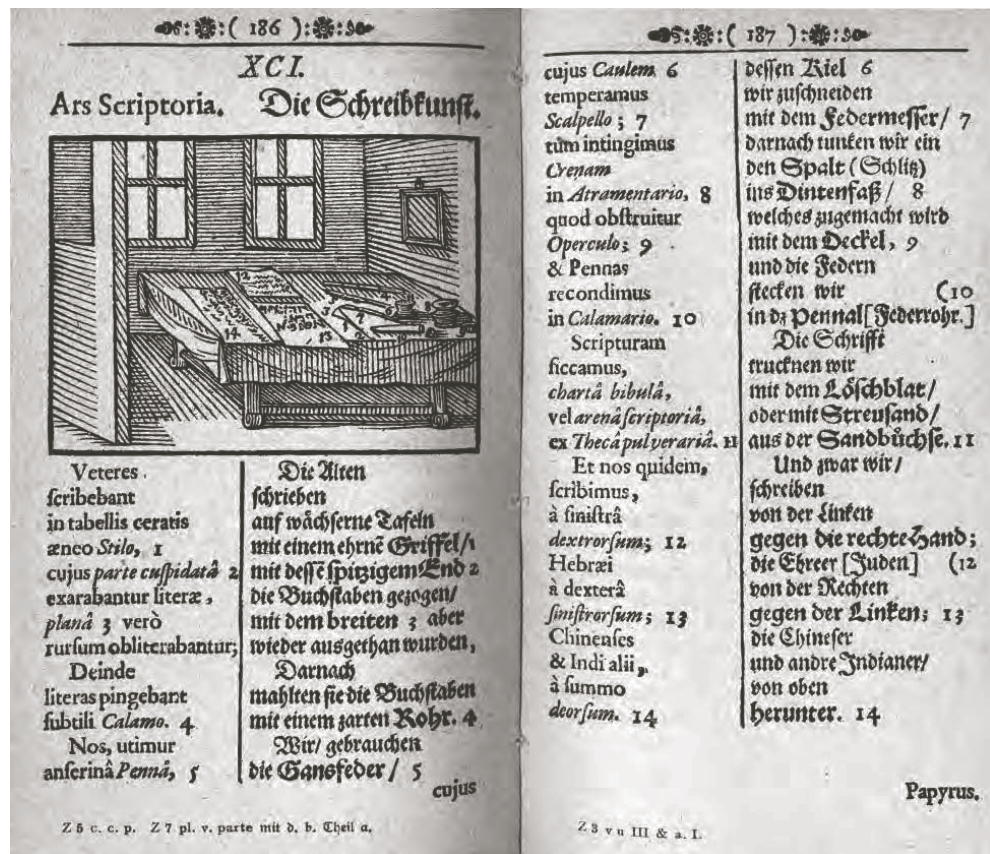 ( 186 )
XCI.
Ars Scriptoria. Die Schreibkunst.
12
14.
13
Veteres.
scribebant
in tabellis ceratis
æneo Stilo, 1
cujus parte cuspidatâ 2
exarabantur literæ,
planâ 3 verò
rursum obliterabantur;
Deinde
literas pingebant
subtili Calamo. 4
Nos, utimur
anserinâ Pennâ, 5
Die Alten
schrieben
auf wächserne Tafeln
mit einem ehrnẽ Griffel/1
mit dessẽ spitzigem End 2
die Buchstaben gezogen/
mit dem breiten 3 aber
wieder ausgethan wurden,
Darnach
mahlten sie die Buchstaben
mit einem zarten Rohr. 4
Wir/ gebrauchen
die Gansfeder / 5
cujus
Z 5 c. c. p. Z 7 pl. v. parte mit d. b. Theil a.
( 187 )
cujus Caulem 6
temperamus
Scalpello ; 7
tùm intingimus
Crenam
in Atramentario, 8
quod obstruitur
Operculo; 9
& Pennas
recondimus
in Calamario. 10
Scripturam
siccamus,
chartâ bibulâ,
vel arenâ scriptoriâ,
ex Thecâ pulverariâ. 11
Et nos quidem,
scribimus,
à sinistrâ
dextrorsum; 12
Hebræi
à dexterâ
sinistrorsum; 13
Chinenses
& Indi alii,
à summo
deorsum. 14
dessen Kiel 6
wir zuschneiden
mit dem Federmesser/ 7
darnach tunken wir ein
den Spalt (Schlitz)
ins Dintenfaß/ 8
welches zugemacht wird
mit dem Deckel, 9
und die Federn
stecken wir (10
in dz Pennal[Federrohr.]
Die Schrifft
trucknen wir
mit dem Löschblat/
oder mit Streusand/
aus der Sandbüchse. 11
Und zwar wir/
schreiben
von der Linken
gegen die rechte Hand;
die Ebreer [Juden] (12
von der Rechten
gegen der Linken; 13
die Chineser
und andre Indianer/
von oben
herunter. 14
Papyrus.
Z 3 v u III & a. I.